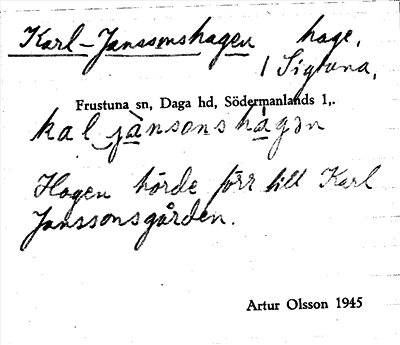 Karl-Janssonshagen hage,
i Sigtuna,
Frustuna sn, Daga hd, Södermanlands l,.
kal jànsonshàgən
Hagen hörde förr till Karl
Janssonsgården.
Artur Olsson 1945